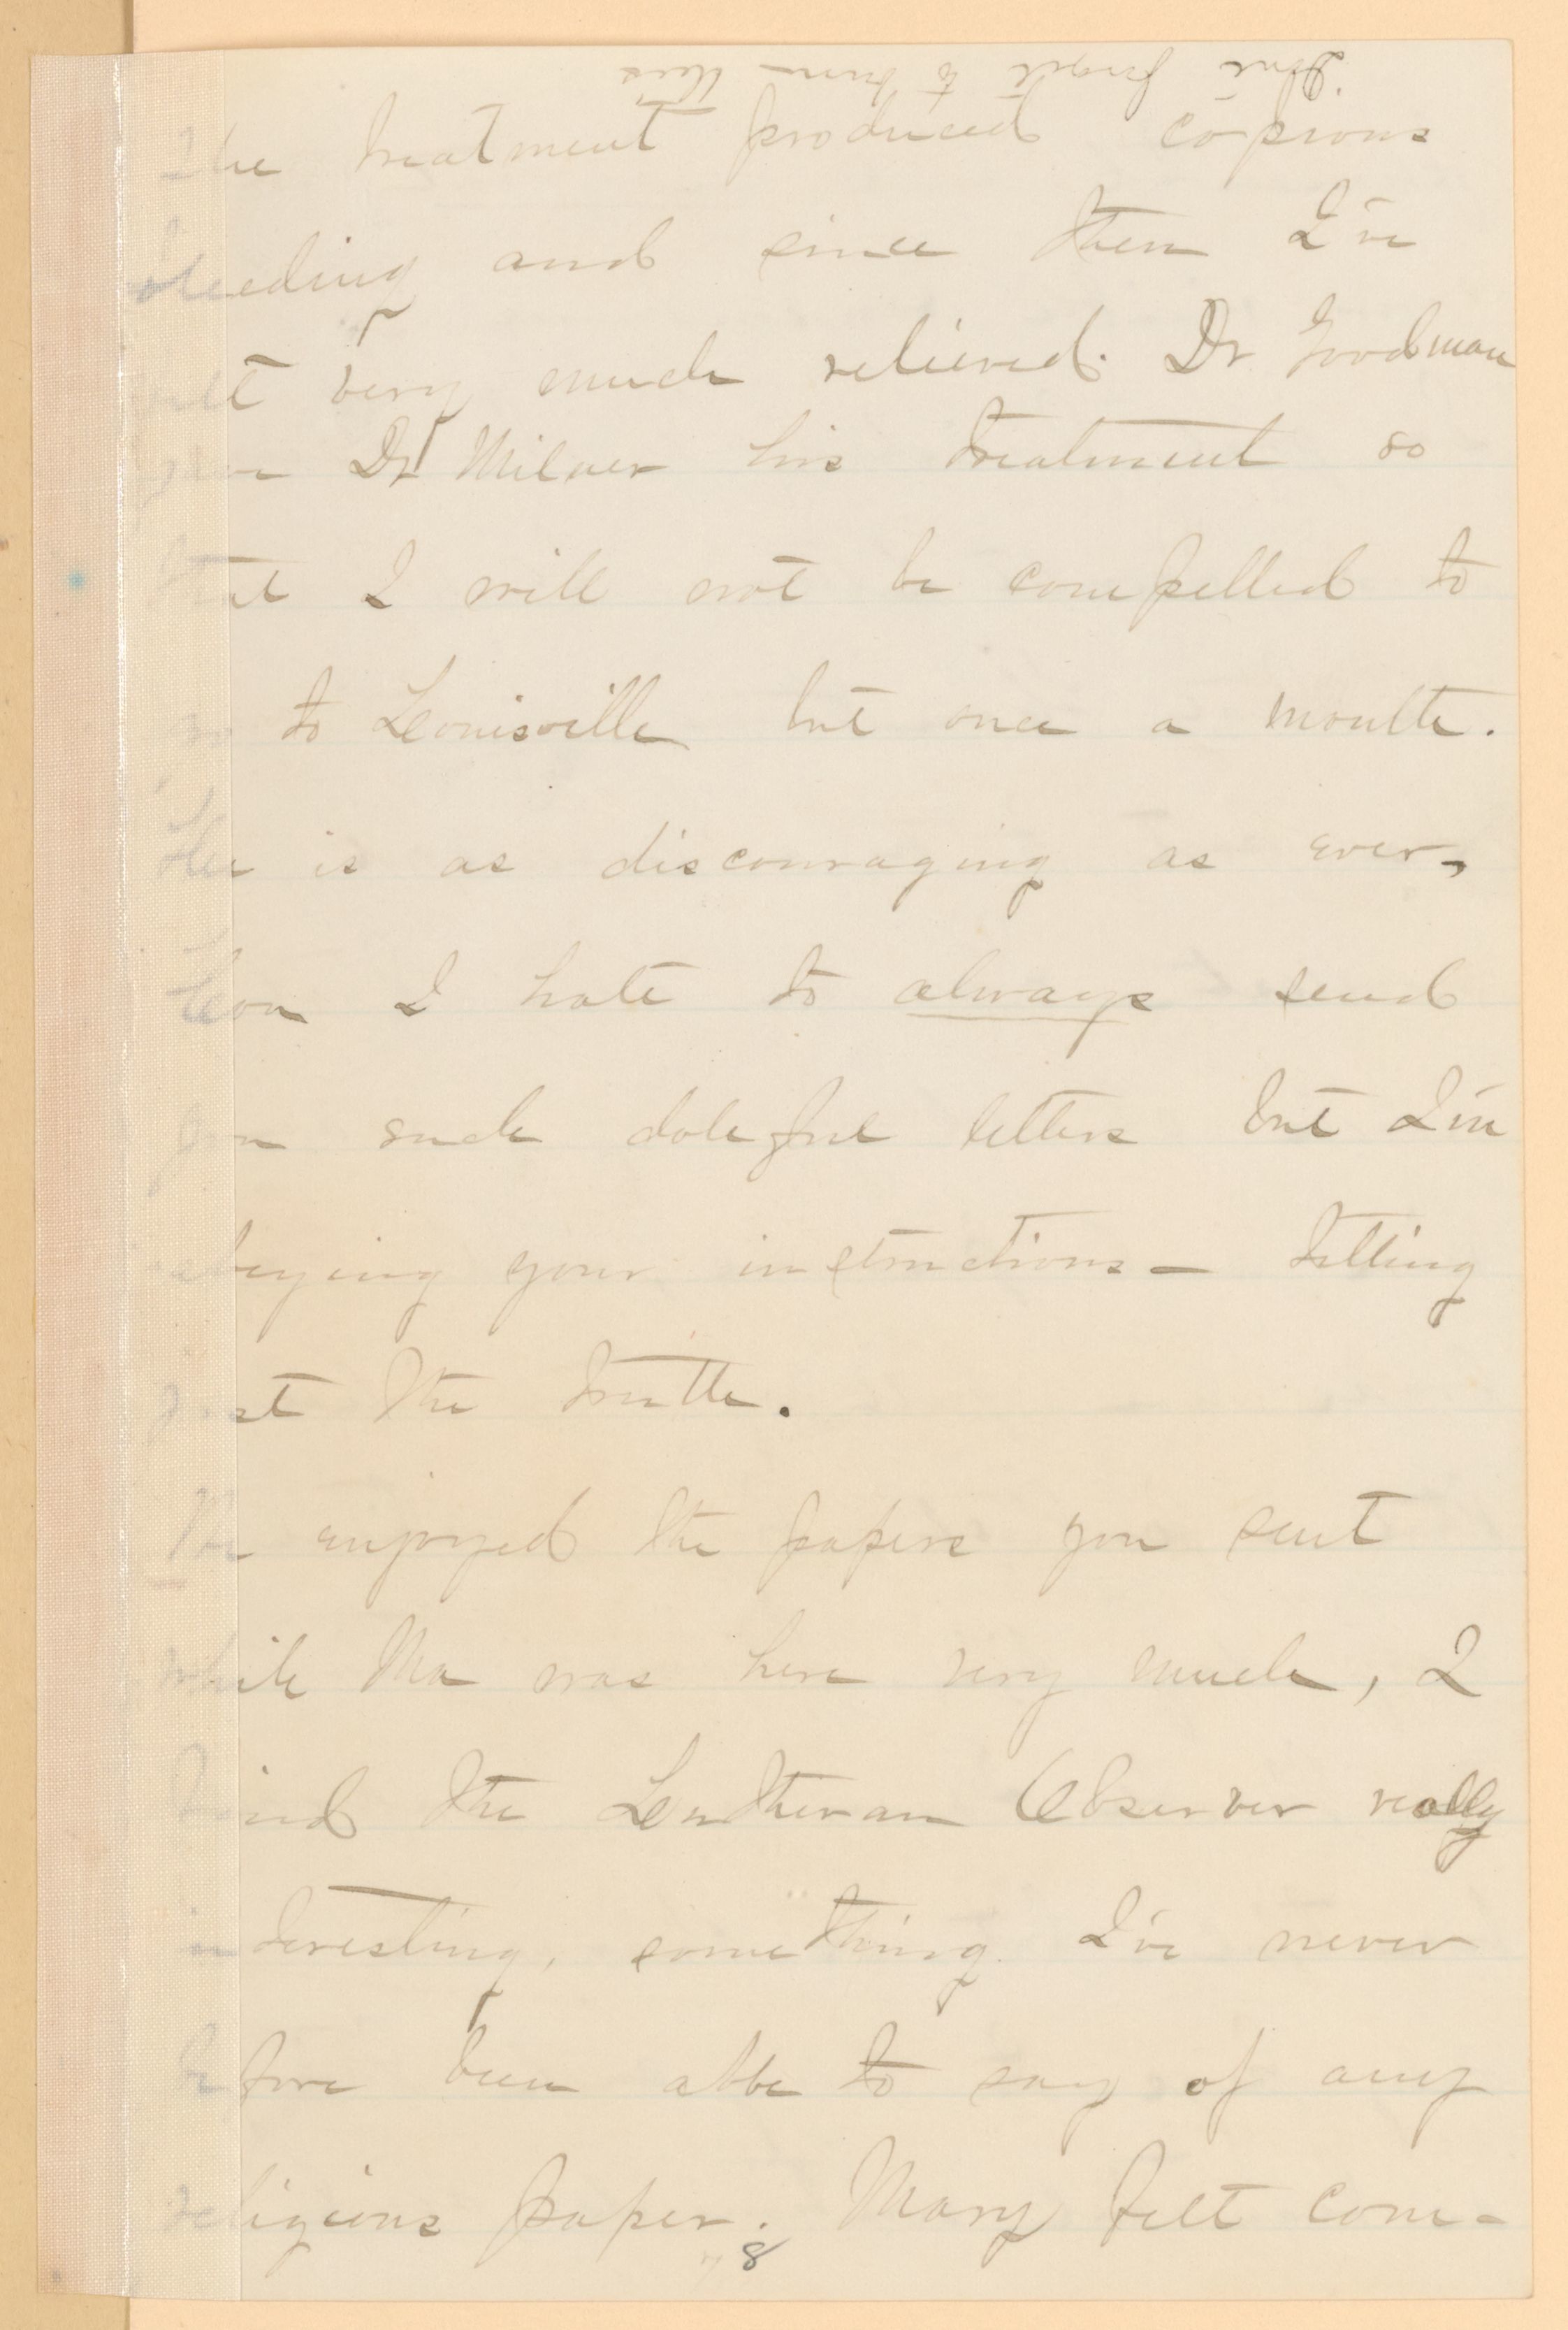 Dont forget to burn this
The treatment produced copious
bleeding and since then I've
felt very much relieved. Dr Goodman
gave Dr Milner his treatment so
that I will not be compelled to
go to Louisville but once a month.
He is as discouraging as ever,
Leon I hate to always send
you such doleful letters but I'm
obeying your instructions — telling
just the truth.
We enjoyed the papers you sent
while Ma was here very much, I
find the Leutheran Observer really
interesting, something I've never
before been able to say of any
religious paper. Mary felt com-
8